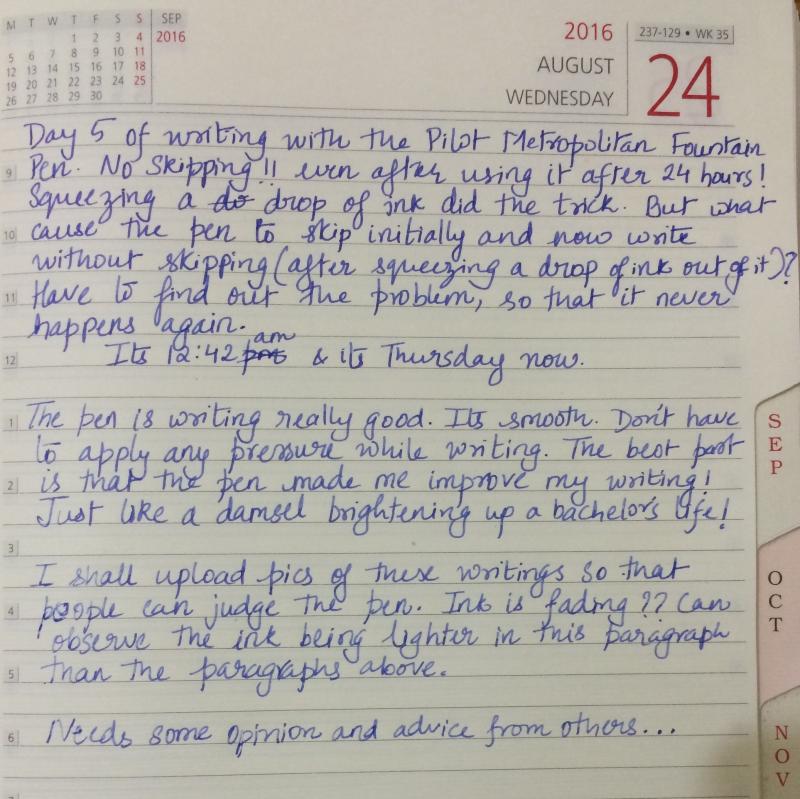 M T W T F S S SEP
1 2 3 4 2016
5 6 7 8 9 10 11
12 13 14 15 16 17 18
19 20 21 22 23 24 25
26 27 28 29 30
2016
AUGUST
WEDNESDAY
237-129 • WK 35
24
Day 5 of writing with the Pilot Metropolitan Fountain
9 Pen. No Skipping!! even after using it after 24 hours!
Squeezing a do drop of ink did the trick. But what
10 cause the pen to skip initially and now write
without skipping (after squeezing a drop of ink out of it)?
11 Have to find out the problem, so that it never
happens again.
12 Its 12:42 pm am & its Thursday now.
1 The pen is writing really good. Its smooth. Don't have
to apply any pressure while writing. The best part
2 is that the pen made me improve my writing!
Just like a damsel brightening up a bachelor's life!
3
I shall upload pics of these writings so that
4 people can judge the pen. Ink is fading?? Can
observe the ink being lighter in this paragraph
5 than the paragraphs above.
6 Needs some opinion and advice from others...
SEP
OCT
NOV